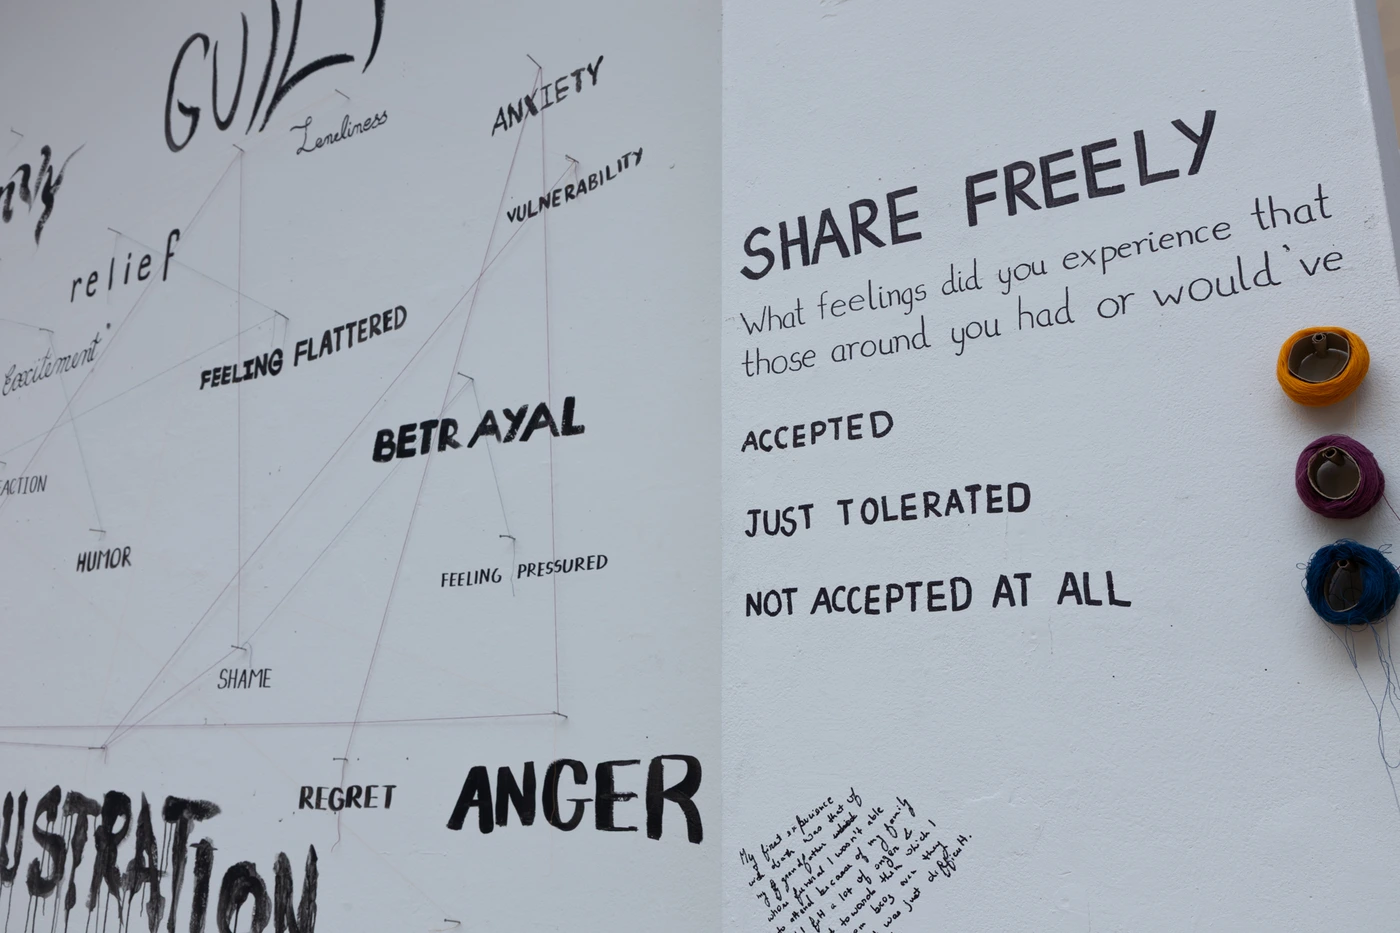 GUILT
Loneliness
ANXIETY
VULNERABILITY
relief
FEELING FLATTERED
Excitement
BETRAYAL
ACTION
HUMOR
FEELING PRESSURED
SHAME
REGRET
ANGER
USTRATION
SHARE FREELY
What feelings did you experience that
those around you had or would've
ACCEPTED
JUST TOLERATED
NOT ACCEPTED AT ALL
My first experience
with death was that of
my grandfather
whose funeral I wasn't able
to attend because of my family
I felt a lot of anger &
towards them which I
even they
was just difficult.